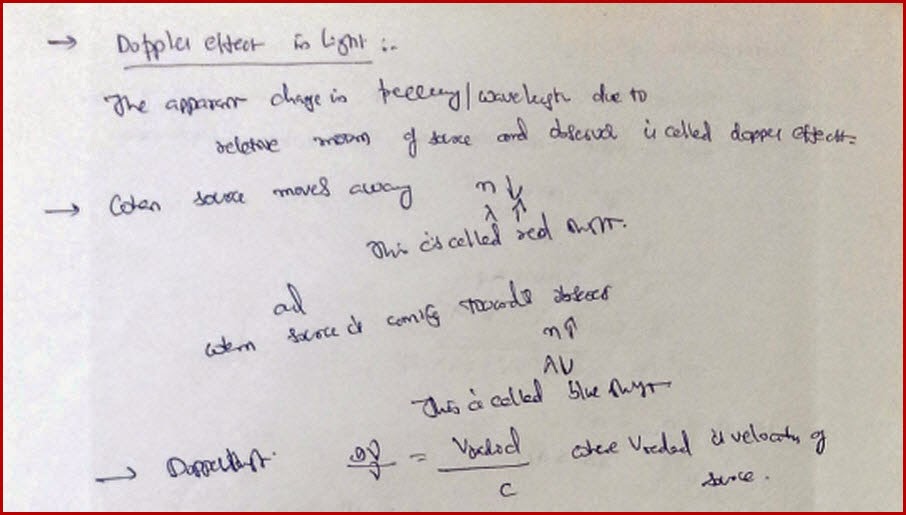 → Doppler effect in Light :-
The apparent change in frequency/wavelength due to
relative motion of source and observer is called dopper effect.
→ When source moves away n ↓
λ ↑
This is called red shift.
and
when source is coming towards observer
n↑
λ↓
This is called blue shift
→ Doppler shift. Δν/ν = Vradial/C where Vradial is velocity of
source.